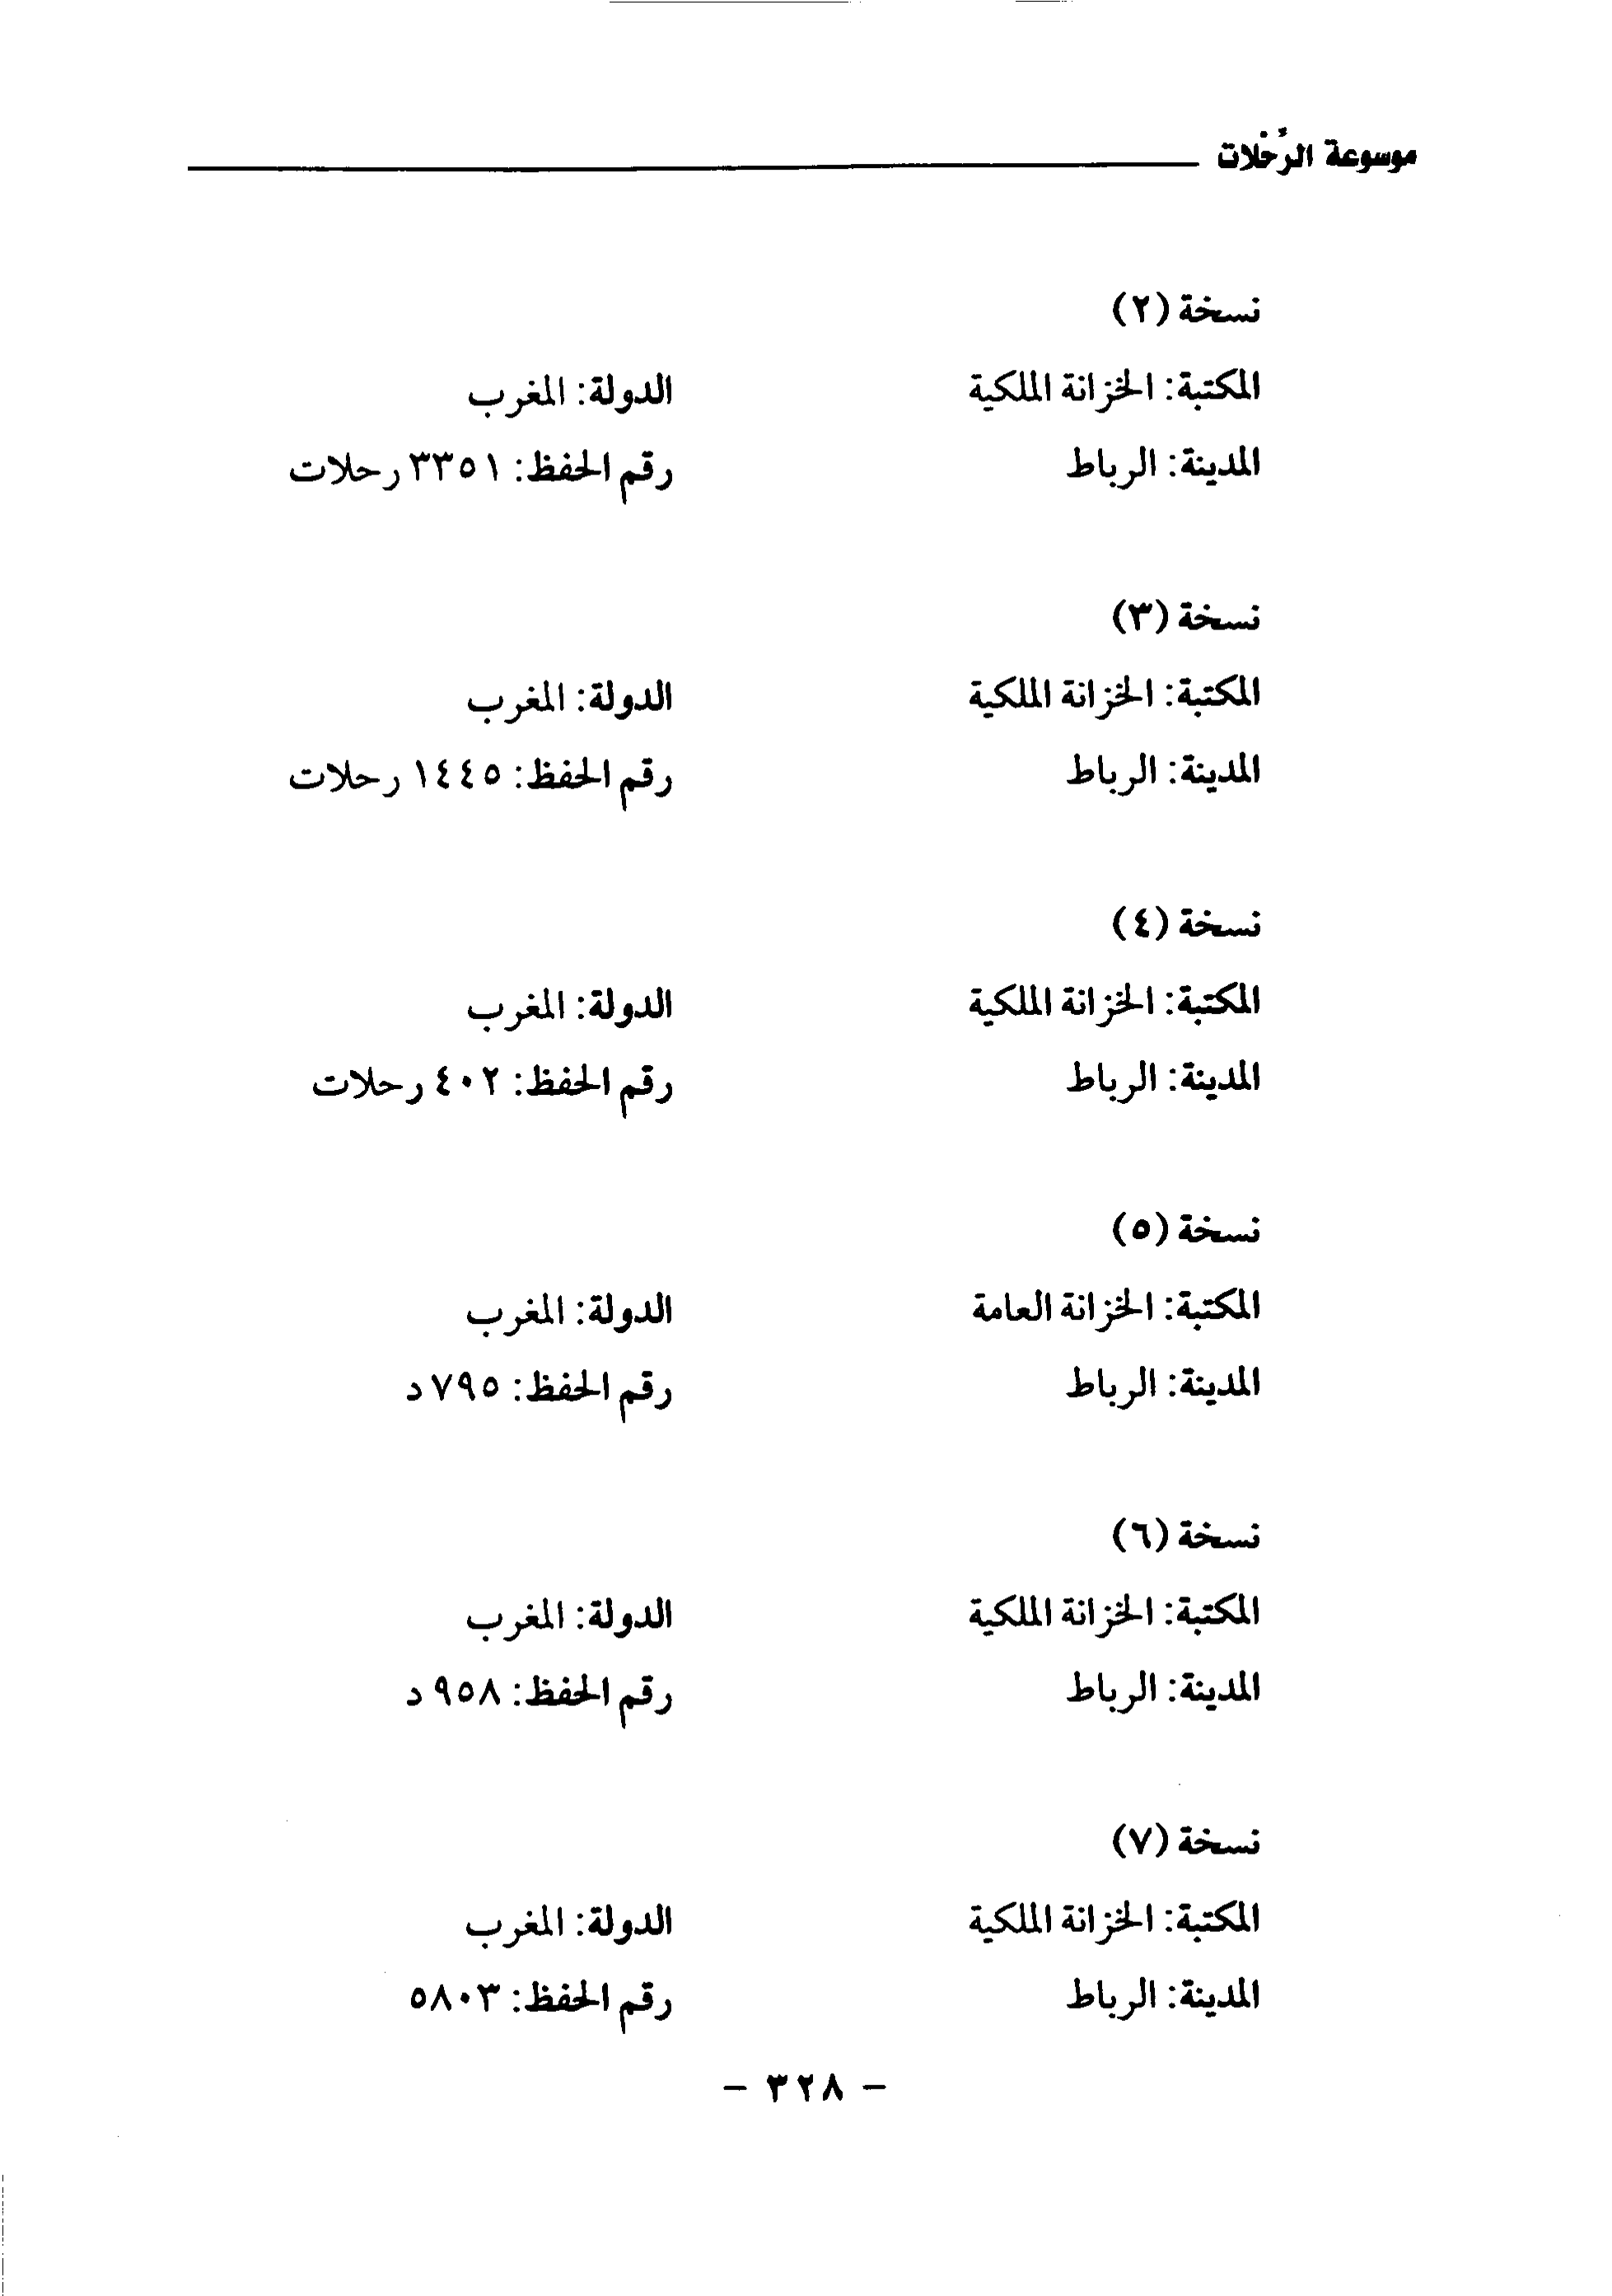 موسوعة الرِّحْلات
نسخة (٢)
المكتبة: الخزانة الملكية الدولة: المغرب
المدينة: الرباط رقم الحفظ: ٣٣٥١ رحلات
نسخة (٣)
المكتبة: الخزانة الملكية الدولة: المغرب
المدينة: الرباط رقم الحفظ: ١٤٤٥ رحلات
نسخة (٤)
المكتبة: الخزانة الملكية الدولة: المغرب
المدينة: الرباط رقم الحفظ: ٤٠٢ رحلات
نسخة (٥)
المكتبة: الخزانة العامة الدولة: المغرب
المدينة: الرباط رقم الحفظ: ٧٩٥ د
نسخة (٦)
المكتبة: الخزانة الملكية الدولة: المغرب
المدينة: الرباط رقم الحفظ: ٩٥٨ د
نسخة (٧)
المكتبة: الخزانة الملكية الدولة: المغرب
المدينة: الرباط رقم الحفظ: ٥٨٠٣
- ٣٢٨ -